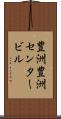 豊洲豊洲
センター
ビル